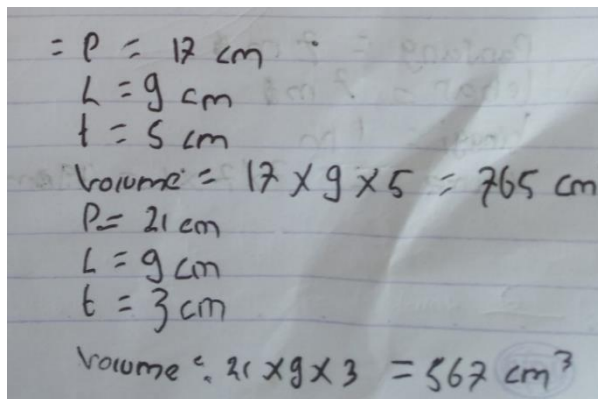 = P = 17 cm
L = 9 cm
t = 5 cm
Volume = 17 x 9 x 5 = 765 cm
P = 21 cm
L = 9 cm
t = 3 cm
Volume : 21 x 9 x 3 = 567 cm³